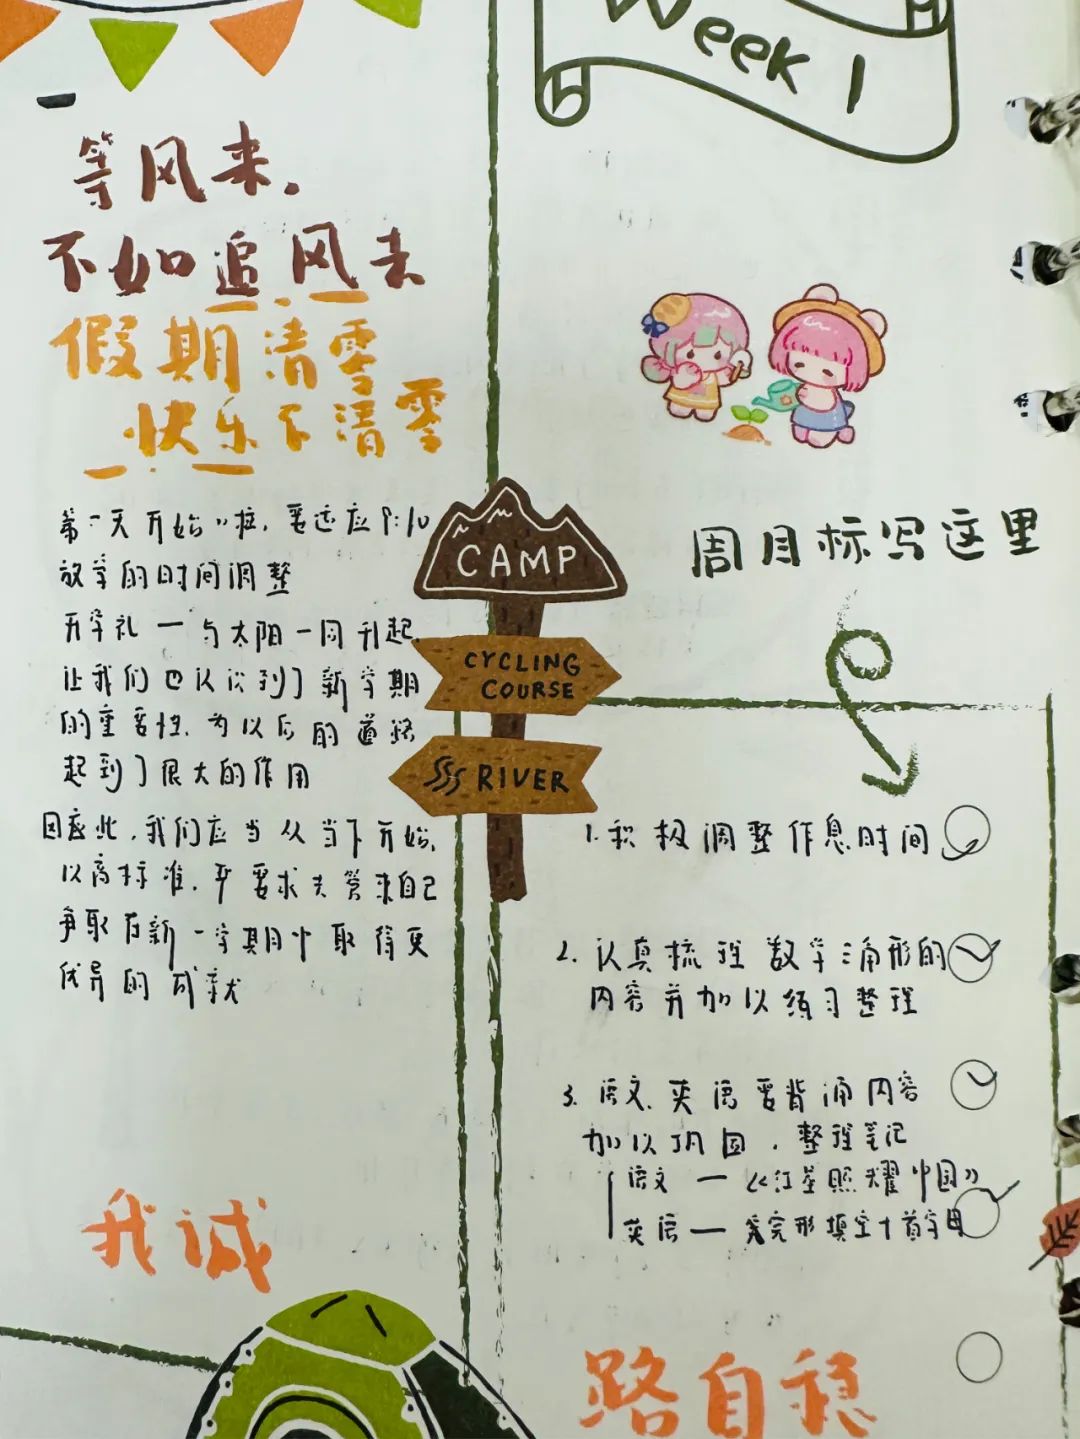 Week 1
等风来，
不如追风去
假期清零
快乐不清零
第一天开始啦，要适应9:10
放学的时间调整
开学礼一与太阳一同升起，
让我们也认识到了新学期
的重要性，为以后的道路
起到了很大的作用
因应此，我们应当从当下开始，
以高标准，严要求去管束自己
争取在新一学期中取得更
优异的成就
我诚
CAMP
CYCLING
COURSE
RIVER
周目标写这里
1.积极调整作息时间
2.认真梳理数学三角形的
内容并加以练习整理
3.语文、英语要背诵内容
加以巩固，整理笔记
语文一《红星照耀中国》
英语一完形填空+首字母
路自稳